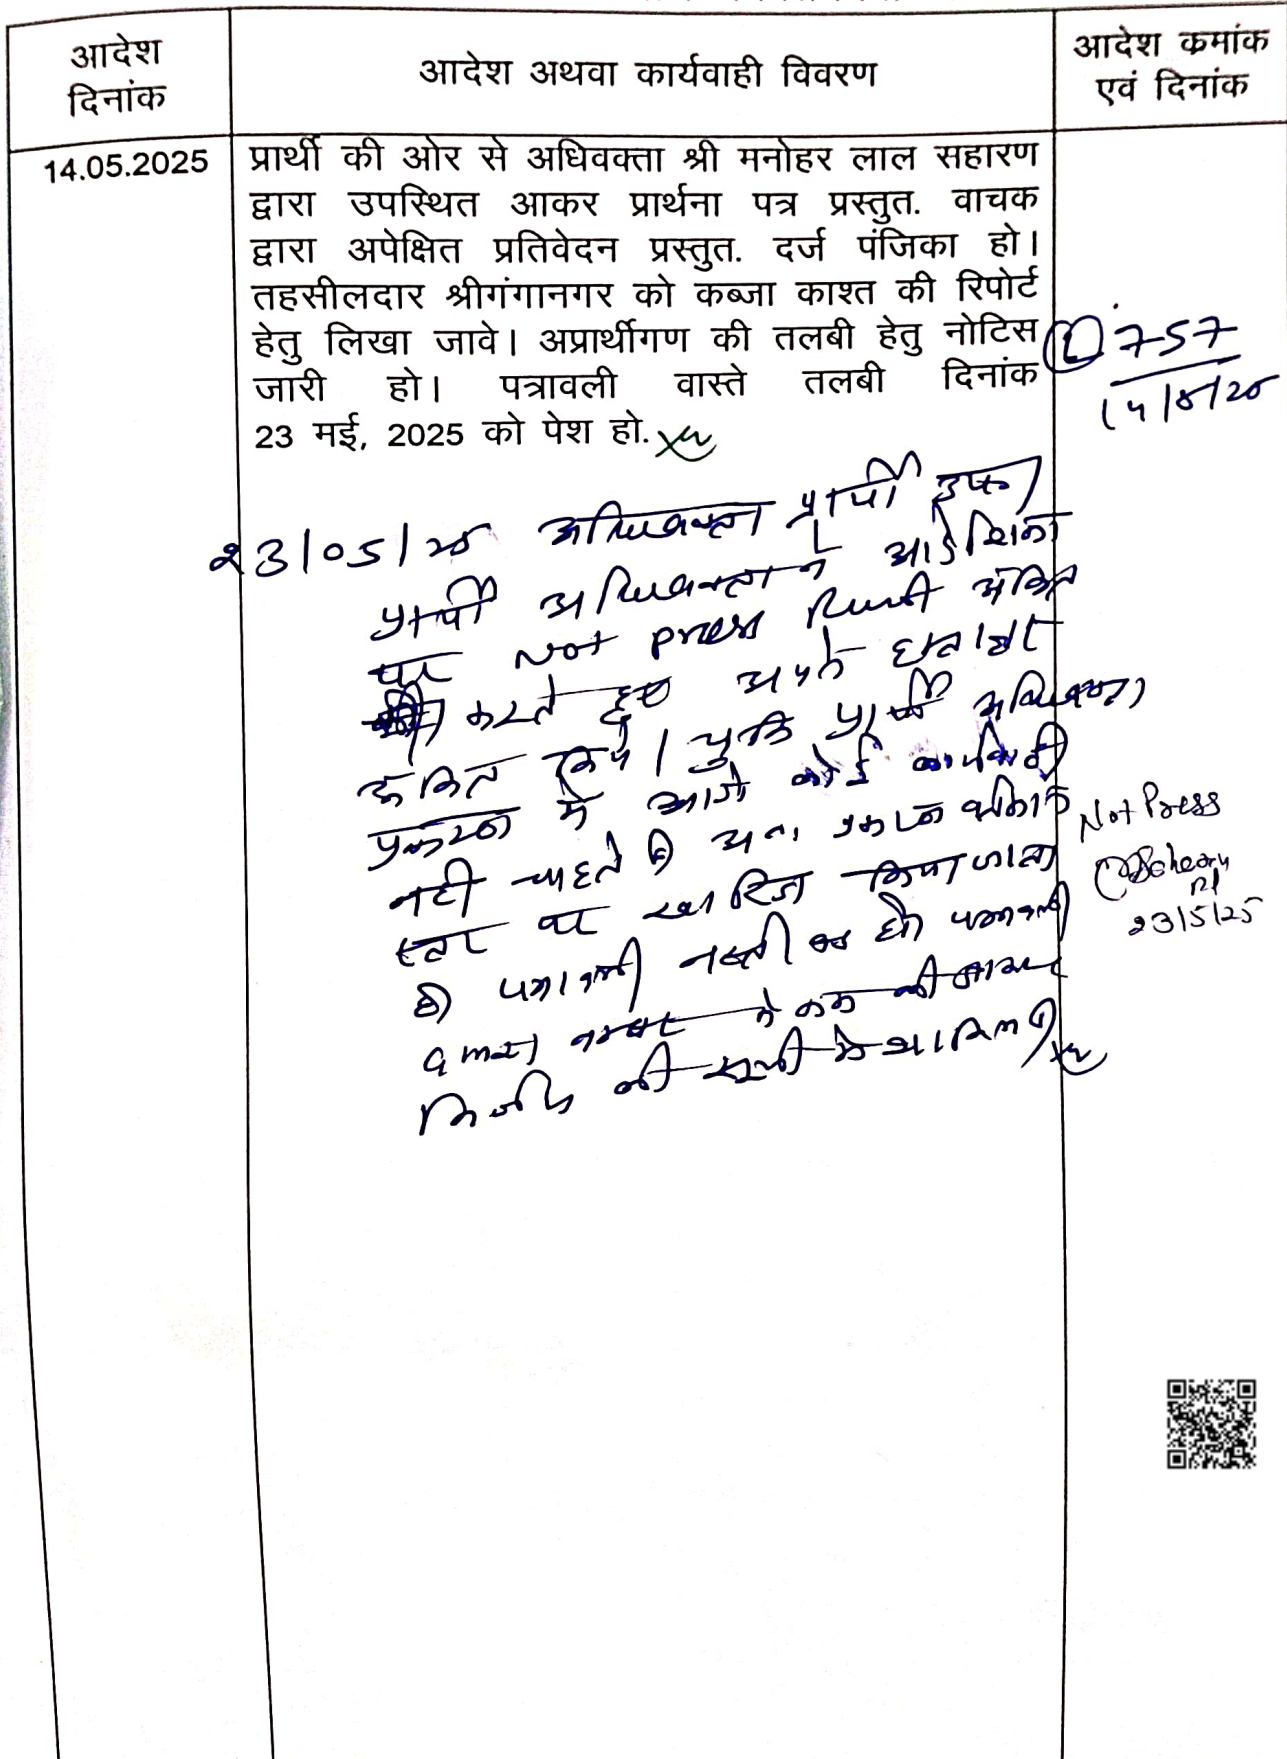 आदेश
दिनांक
आदेश अथवा कार्यवाही विवरण
आदेश कमांक
एवं दिनांक
14.05.2025
प्रार्थी की ओर से अधिवक्ता श्री मनोहर लाल सहारण
द्वारा उपस्थित आकर प्रार्थना पत्र प्रस्तुत. वाचक
द्वारा अपेक्षित प्रतिवेदन प्रस्तुत. दर्ज पंजिका हो।
तहसीलदार श्रीगंगानगर को कब्जा काश्त की रिपोर्ट
हेतु लिखा जावे। अप्रार्थीगण की तलबी हेतु नोटिस
जारी हो। पत्रावली वास्ते तलबी दिनांक
23 मई, 2025 को पेश हो.
757
14/5/25
23/05/25 अधिवक्ता प्रार्थी उप0
प्रार्थी अधिवक्ता ने आदेशिका
पर Not press टिप्पणी अंकित
करते हुए अपने हस्ताक्षर
अंकित किये। चुकि प्रार्थी अधिवक्ता
प्रकरण में आगे कोई कार्यवाही
नहीं चाहते है अतः प्रकरण इसी
स्तर पर खारिज किया जाता
है। पत्रावली नस्ती बद्ध हो पत्रावली
नम्बर से कम की जाकर
की सूची में शामिल हो
Not Press
23/5/25